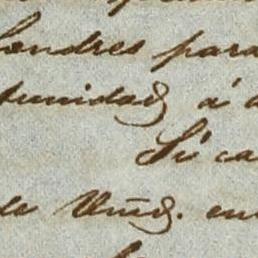 Londres para
tunidad á
Si ca
de Vmd. en